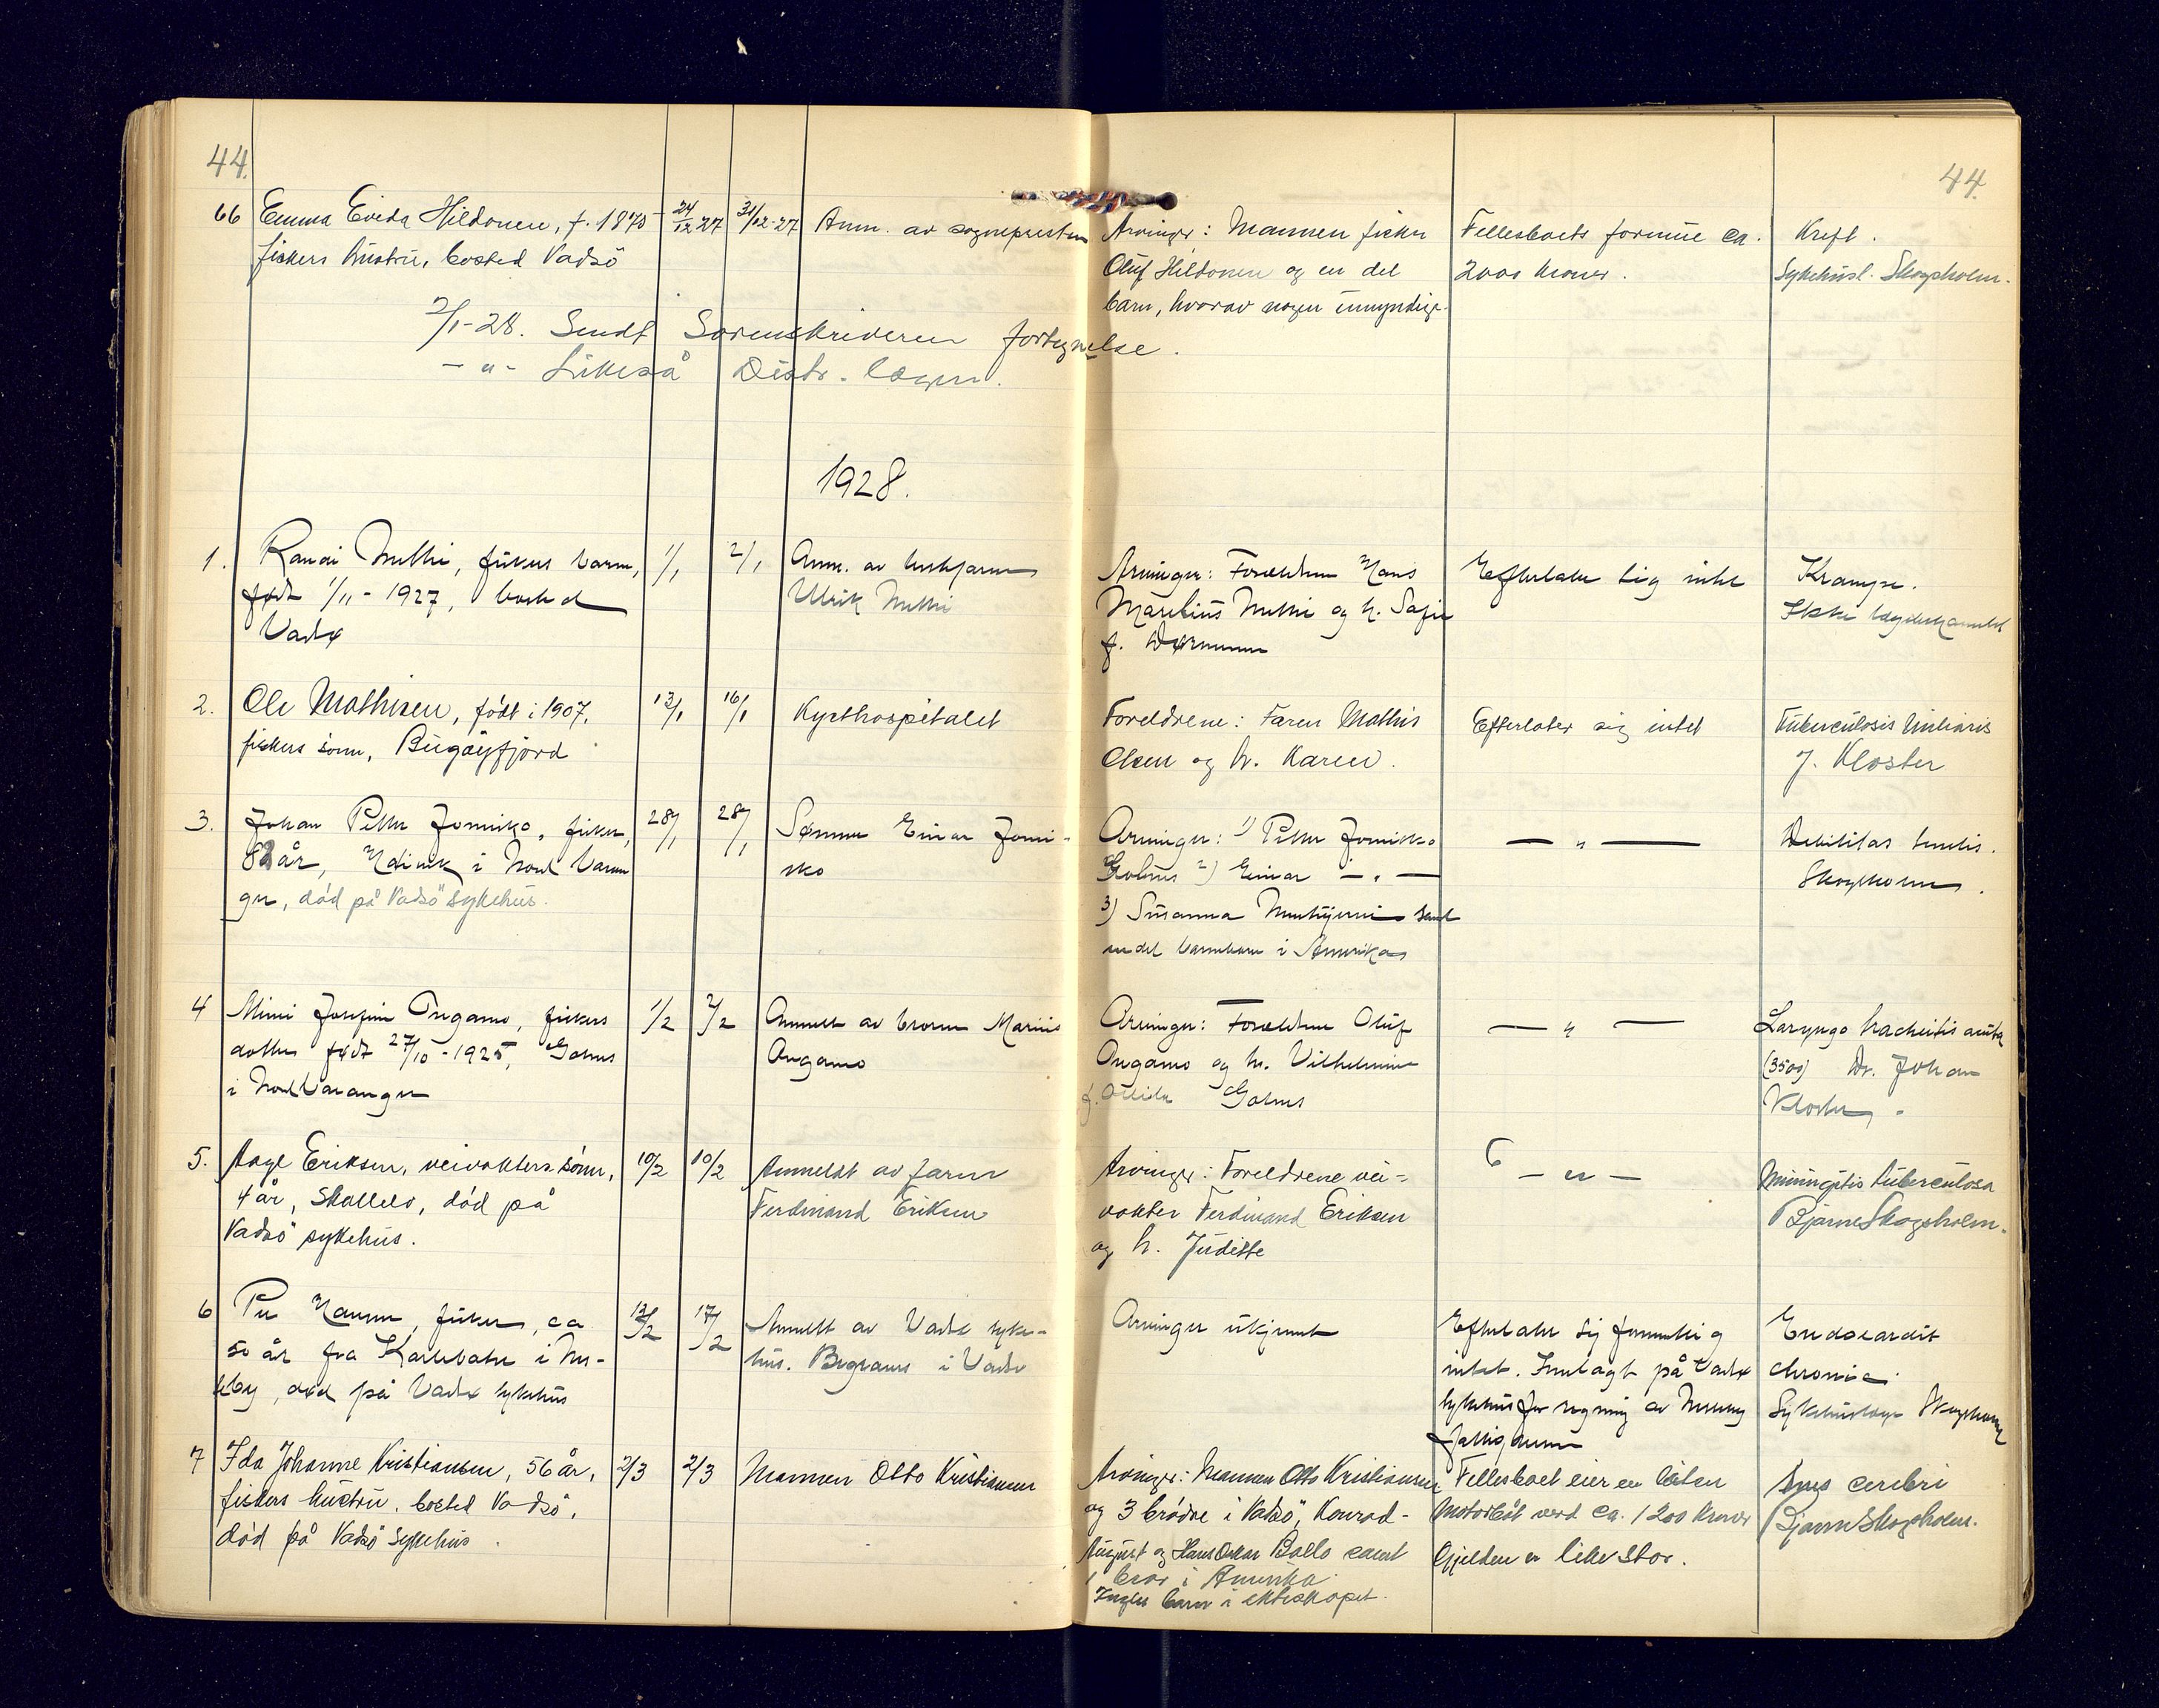 44.
44.
66 Emma Eveda Hildonen, f. 1870 24/12 27 31/12-27 Anm. av sognepresten Arvinger: Mannen fisker Fellesboets formue ca. Kreft.
fiskers hustru, bosted Vadsö Oluf Hildonen og en del 2000 kroner. Sykehusl. Skogsholm.
barn, hvorav nogen umyndige.
2/1-28. Sendt Sorenskriveren fortegnelse.
- " - Likeså Distr. lægen.
1928.
1. Randi fiskers barn, 1/1 2/1 Anm. av Arvinger: Foreldrene Hans Efterlater sig intet Krampe.
født 1/11-1927, bosted Ulrik Marelius og h. Sofie Ikke lægebehandlet
Vadsø f.
2. Ole Mathisen, födt i 1907, 13/1 16/1 Kysthospitalet Foreldrene: Faren Mathis Efterlater sig intet Tuberculosis miliaris
fiskers sönn, Bugöyfjord Olsen og h. Karen. J. Kloster
3. Johan Petter Jomisko, fisker, 28/1 28/1 Sønnen Einar Jomi- Arvinger: 1) Petter Jomisko — " — Debilitas senilis.
82 år, i Nord Varan sko Golnes 2) Einar — " — Skogsholm.
ger, död på Vadsö sykehus. 3) Susanna samt
endel barnebarn i Amerika
4 Mimi Josefine Ongamo, fiskers 1/2 2/2 Anmeldt av broren Marius Arvinger: Foreldrene Oluf — " — Laryngo tracheitis acuta
datter født 27/10-1925, Golnes Ongamo Ongamo og h. Vilhelmine (3500) Dr. Johan
i Nord Varanger f. Golnes Kloster.
5. Aage Eriksen, veivokters sönn, 10/2 10/2 Anmeldt av faren Arvinger: Foreldrene vei- — " — Miningitis tuberculosa
4 år, Skallelv, död på Ferdinand Eriksen vokter Ferdinand Eriksen Bjarne Skogsholm.
Vadsö sykehus. og h. Juditte
6 Per Hansen, fisker, ca 13/2 17/2 Anmeldt av Vadsø syke- Arvinger ukjent Efterlater sig formentlig Endocardit
50 år fra Karlebotn i Nes- hus. Begraves i Vadsø intet. Innlagt på Vadsø chronica.
seby, død på Vadsø sykehus sykehus for regning av Nesseby Sykehuslæge Skogsholm
fattigvesen
7 Ida Johanne Kristiansen, 56 år, 2/3 2/3 Mannen Otto Kristiansen Arvinger: Mannen Otto Kristiansen Fellesboet eier en liten cerebri
fiskers hustru, bosted Vadsö, og 3 brödre i Vadsö, Konrad - Motorbåt verd ca. 1200 kroner Bjarne Skogsholm.
död på Vadsö sykehus. August og Hans Oskar Ballo samt Gjelden er like stor.
1 bror i Amerika.
Ingen barn i ekteskapet.